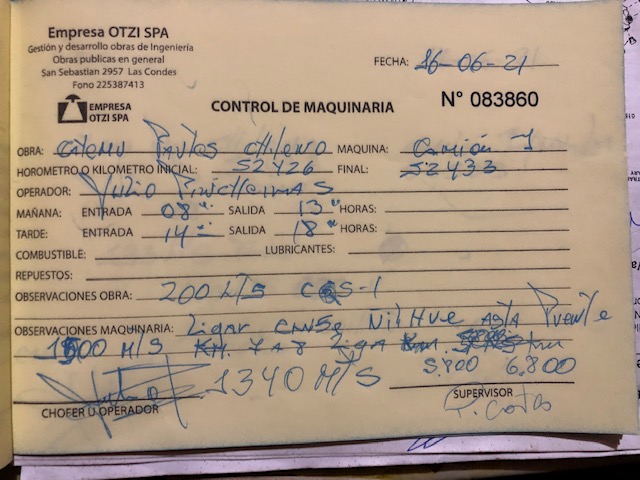 Empresa OTZI SPA
Gestión y desarrollo obras de Ingeniería
Obras publicas en general
San Sebastian 2957 Las Condes
Fono 225387413
FECHA: 26-06-21
EMPRESA
OTZI SPA
CONTROL DE MAQUINARIA
N° 083860
OBRA: chilena MAQUINA: Camión 1
HOROMETRO O KILOMETRO INICIAL: 52426 FINAL: 52433
OPERADOR: Julio
MAÑANA: ENTRADA 08 SALIDA 13 HORAS:
TARDE: ENTRADA 14 SALIDA 18 HORAS:
COMBUSTIBLE: LUBRICANTES:
REPUESTOS:
OBSERVACIONES OBRA: 200 M/S
OBSERVACIONES MAQUINARIA: Nilhue
M/S KM 5.400 6.800
1340 M/S
CHOFER U OPERADOR SUPERVISOR